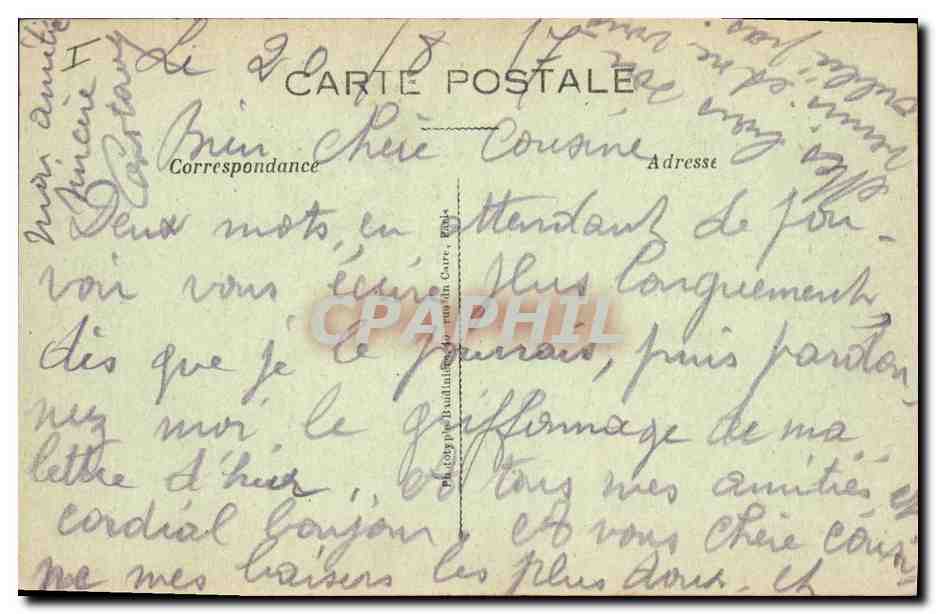 Le 20/8/17
CARTE POSTALE
Bien chère Cousine
Correspondance
Adresse
Deux mots, en attendant de pou-
voir vous écrire plus longuement,
dès que je le pourrais, puis pardon-
nez moi le griffonnage de ma
lettre d'hier, à tous mes amitiés, et
cordial bonjour. et à vous chère cousi-
ne mes baisers les plus doux. et
mon amitié
sincère
I
Phototypie Baudinière, rue du Caire, Paris
CPAPHIL